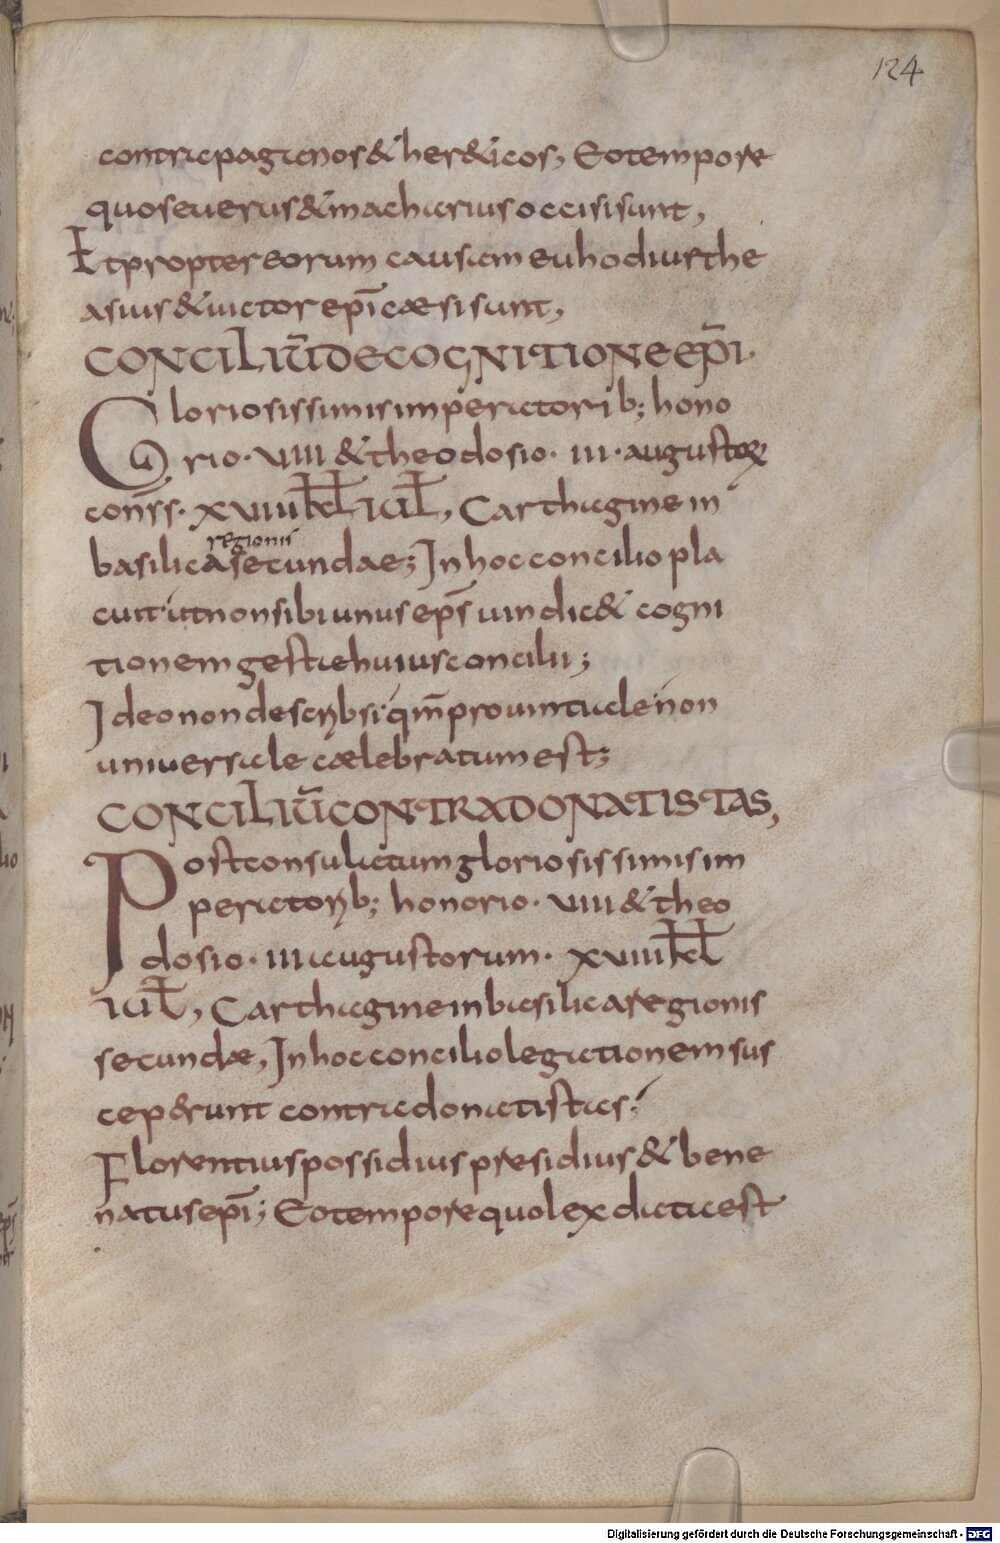 124
contra paganos & her&icos, Eo tempore
quo seuerus & macharius occisi sunt,
Et propter eorum causam euhodius the
asius & uictor epī caesi sunt,
CONCILIŪ DE COGNITIONE EPĪ.
Gloriosissimis imperatorib; hono
rio · VIIII & theodosio · III · augustoꝝ
conss̄ · XVIIII kƚ iuƚ, Carthagine in
regionis
basilica secundae; In hoc concilio pla
cuit ut non sibi unus eps̄ uindic& cogni
tionem gesta huius concilii;
Ideo non describsi qm̄ prouinciale non
uniuersale caelebratum est;
CONCILIŪ CONTRA DONATISTAS,
Post consulatum gloriosissimis im
peratorib; honorio · VIII & theo
dosio · III augustorum · XVIIII kƚ
iuƚ, Carthagine in basilica regionis
secundae, In hoc concilio legationem sus
ceperunt contra donatistas;
Florentius possidius presidius & bene
natus epī; Eo tempore quo lex dicta est
Digitalisierung gefördert durch die Deutsche Forschungsgemeinschaft - DFG